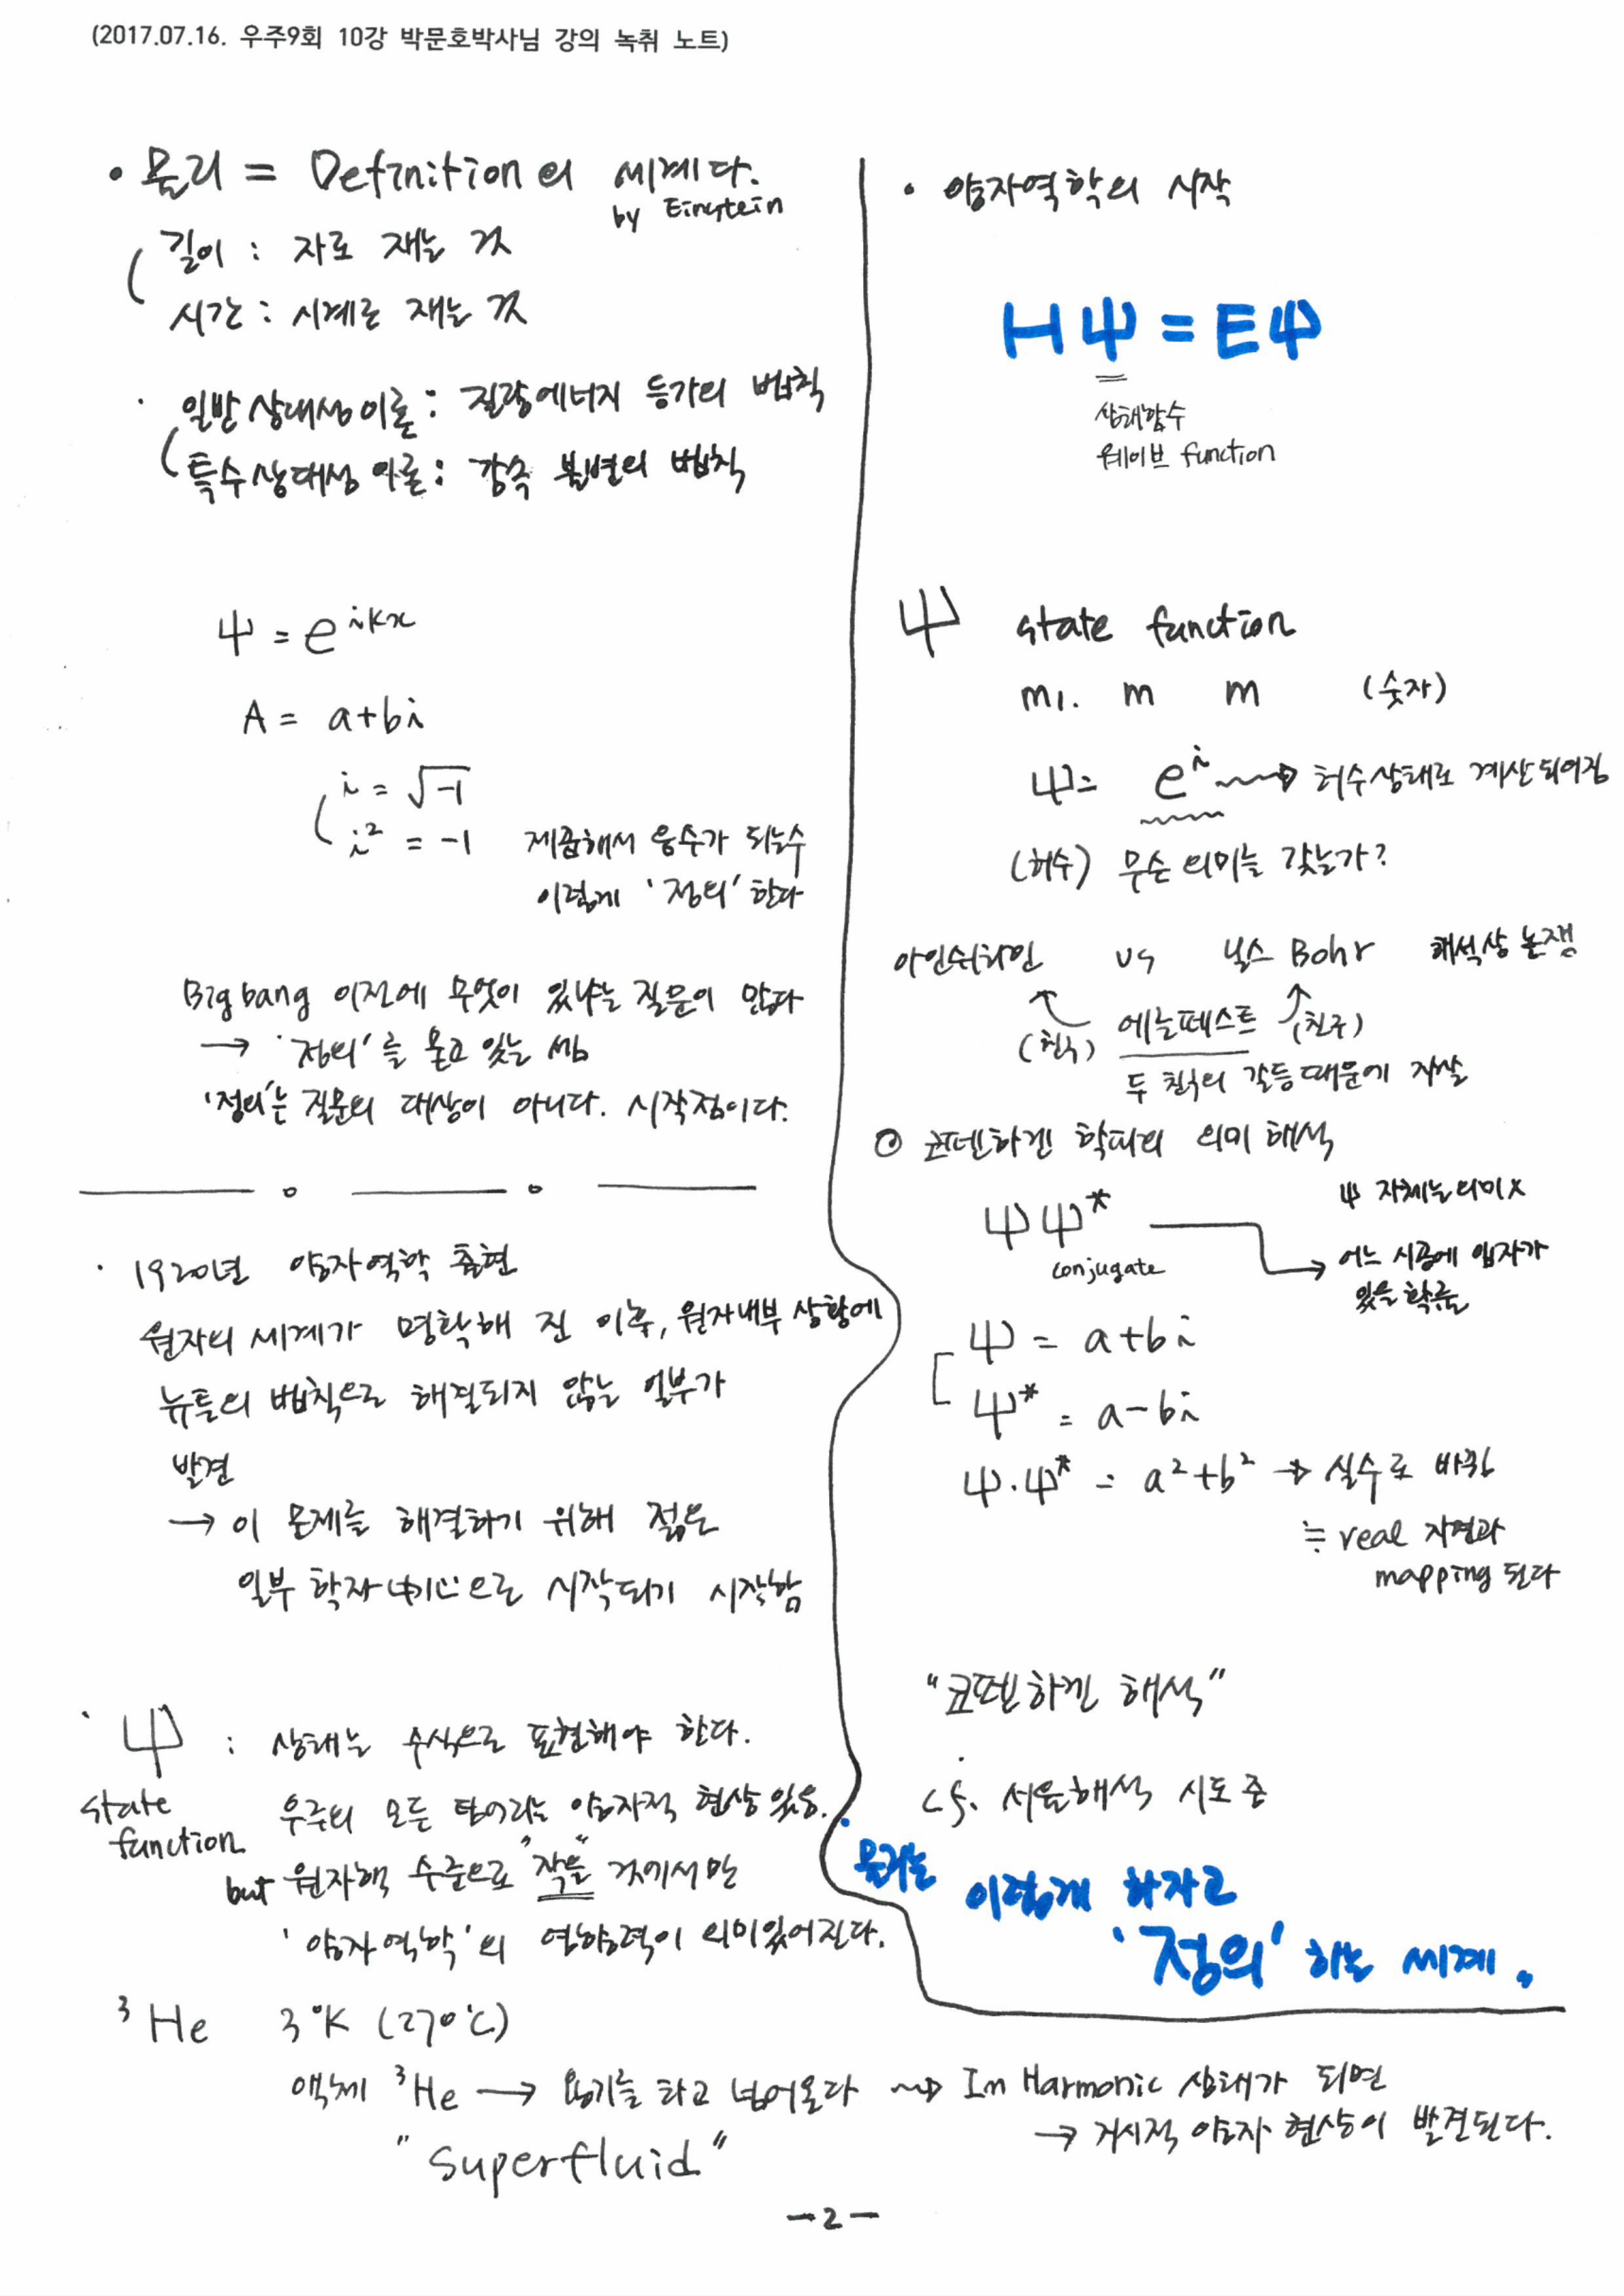 (2017.07.16. 우주9회 10강 박문호박사님 강의 녹취 노트)
• 물리 = Definition의 세계다.
by Einstein
길이 : 자로 재는 것
시간 : 시계로 재는 것
· 일반상대성이론 : 질량에너지 등가의 법칙
특수상대성 이론 : 광속 불변의 법칙
Ψ = e^ikx
A = a+bi
i = √-1
i² = -1 제곱해서 음수가 되는수
이렇게 '정의' 한다
Big bang 이전에 무엇이 있냐는 질문이 많다
→ '정의'를 묻고 있는 셈
'정의'는 질문의 대상이 아니다. 시작점이다.
· 1920년 양자역학 출현
원자의 세계가 명확해 진 이후, 원자내부 상황에
뉴튼의 법칙으로 해결되지 않는 일부가
발견
→ 이 문제를 해결하기 위해 젊은
일부 학자 中心으로 시작되기 시작함
· Ψ : 상태는 수식으로 표현해야 한다.
state function
우주의 모든 덩어리는 양자적 현상 있음.
but 원자핵 수준으로 "작은" 것에서만
'양자역학'의 영향력이 의미있어진다.
³He 3°K (270℃)
액체 ³He → 용기를 타고 넘어온다 ⇝ Im Harmonic 상태가 되면
→ 거시적 양자 현상이 발견된다.
"Superfluid"
• 양자역학의 시작
HΨ = EΨ
상태함수
웨이브 function
Ψ state function
m1. m m (숫자)
Ψ= e^i ⇝ 허수상태로 계산되어짐
(허수) 무슨 의미를 갖는가?
아인쉬타인 vs 닐스 Bohr 해석상 논쟁
(친구) 에렌페스트 (친구)
두 친구의 갈등때문에 자살
◎ 코펜하겐 학파의 의미 해석
Ψ 자체는 의미 X
ΨΨ* → 어느 시공에 입자가
conjugate
있을 확률
Ψ = a+bi
Ψ* = a-bi
Ψ·Ψ* = a²+b² → 실수로 바뀜
≒ real 자연과
mapping 된다
"코펜하겐 해석"
cf. 서울해석 시도 중
· 물리는 이렇게 하자고
'정의' 하는 세계.
-2-